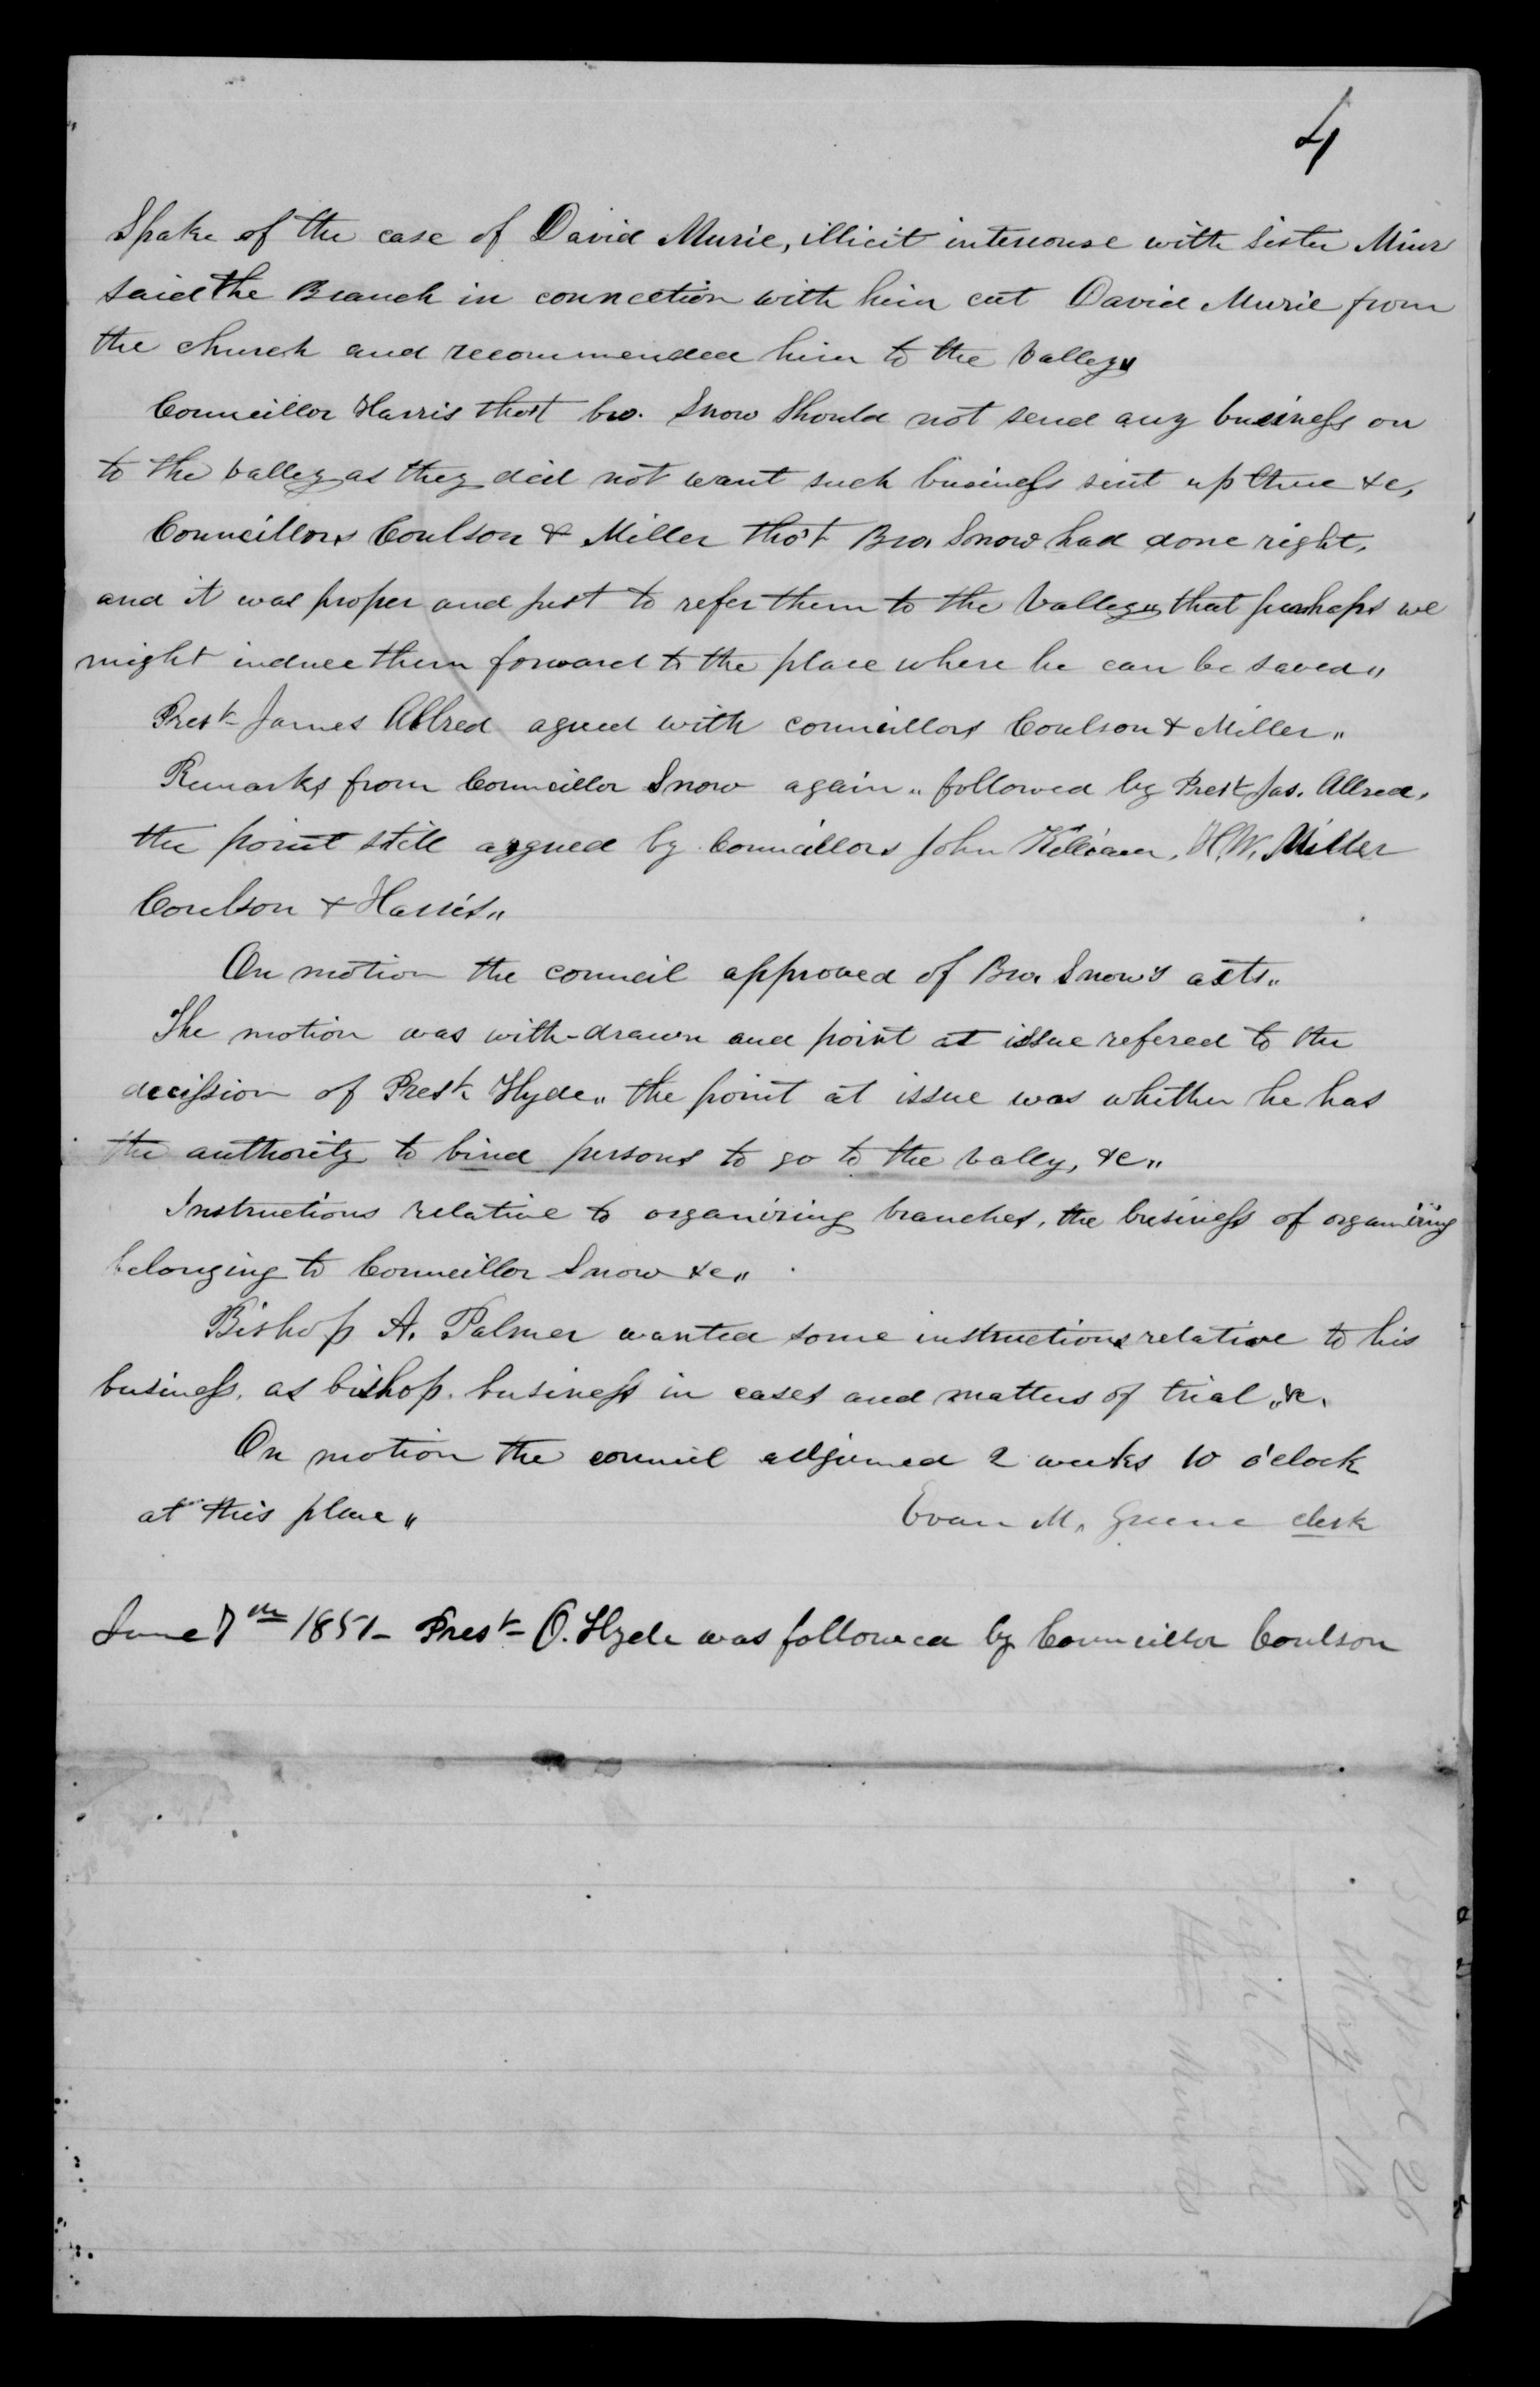 4
Spake of the case of David Murie, illicit intercourse with Sister Miur
said the Branch in connection with him cut David Murie from
the church and recommended him to the Valley"
Councillor Harris thot bro. Snow should not send any business on
to the valley as they did not want such business sent up there &c,
Councillors Coulson & Miller tho't Bro Snow had done right,
and it was proper and just to refer them to the Valley" that perhaps we
might induce them forward to the place where he can be saved"
Prest James Allred agreed with councillors Coulson & Miller"
Remarks from Councillor Snow again" followed by Prest Jas. Allred,
the point still argued by Councillors John Killian, H.W. Miller
Coulson & Harris"
On motion the council approved of Bro Snow's acts"
The motion was with-drawn and point at issue refered to the
decission of Prest Hyde" the point at issue was whether he has
the authority to bind persons to go to the vally, &c"
Instructions relative to organizing branches, the business of organizing
belonging to Councillor Snow &c"
Bishop A. Palmer wanted some instructions relative to his
business, as bishop. business in cases and matters of trial, &c.
On motion the council adjourned 2 weeks 10 o'clock
at this place"
Evan M. Greene clerk
June 7th 1851- Prest- O. Hyde was followed by Councillor Coulson